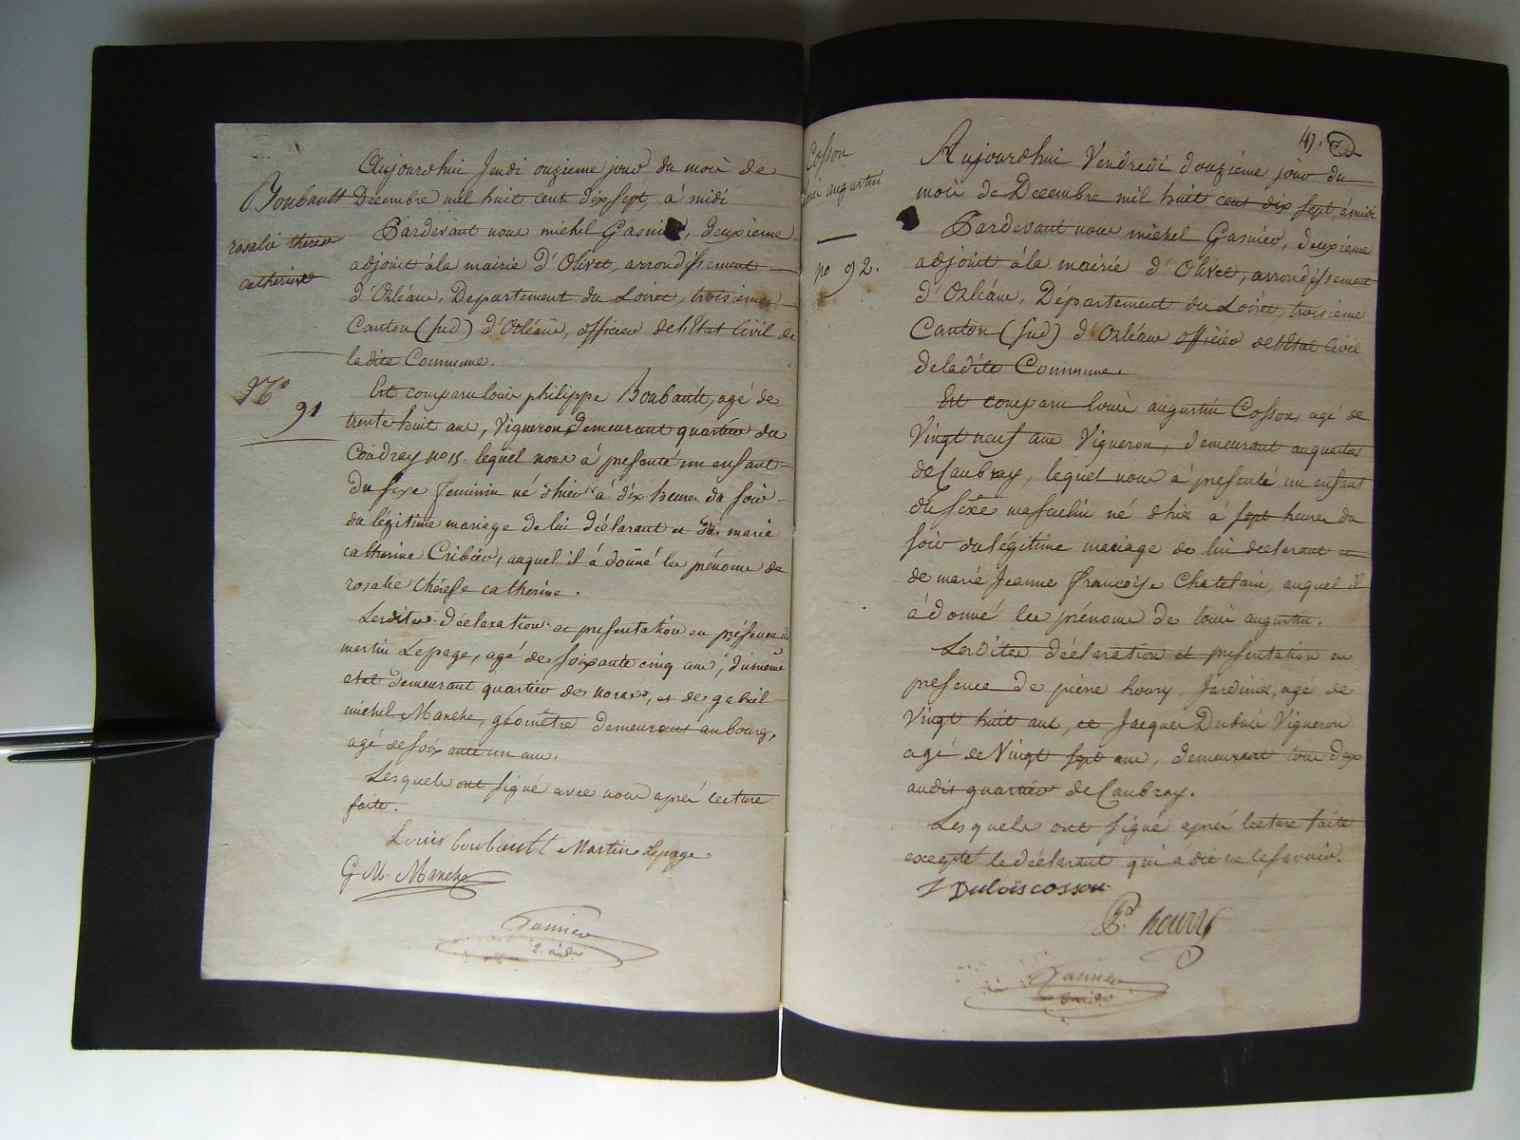 Boubault
rosalie therese
catherine
No
91
Aujourdhui Jeudi onzieme jour du mois de
Décembre mil huit cent dix sept, à midi
Pardevant nous michel Gasnier, deuxieme
adjoint à la mairie d'Olivet, arrondissement
d'Orléans, Departement du Loiret, troisieme
Canton (sud) d'Orléans, officier de l'Etat Civil de
la dite Commune.
Est comparu louis philippe Boubault, agé de
trente huit ans, Vigneron, demeurant quartier du
Coudray no 15. lequel nous à presenté un enfant
du sexe feminin né d'hier à dix heures du soir
du légitime mariage de lui déclarant et de marie
catherine Cribier, auquel il à donné les prénoms de
rosalie thérèse catherine.
Lesdites déclaration et presentation en présence de
martin Lepage, agé de soixante cinq ans, du même
etat demeurant quartier de, et de gabriel
michel Manche, géomètre demeurant au bourg,
agé de soixante un ans.
Lesquels ont signé avec nous après lecture
faite.
Louis boubault Martin Lepage
G M Manche
Gasnier
2. adj
47.
Cosson
louis augustin
no 92.
Aujourdhui Vendredi douzième jour du
mois de Decembre mil huit cent dix sept, à midi
Pardevant nous michel Gasnier, deuxième
adjoint à la mairie d'Olivet, arrondissement
d'Orléans, Département du Loiret, troisieme
Canton (sud) d'Orléans officier de l'Etat Civil
de ladite Commune.
Est comparu louis augustin Cosson, agé de
Vingt neuf ans Vigneron, demeurant au quartier
de Caubray, lequel nous à presenté un enfant
du sexe masculin né d'hier à sept heures du
soir du légitime mariage de lui declarant et
de marie Jeanne françoise Chatelain, auquel il
à donné les prénoms de louis augustin.
Lesdites déclaration et presentation en
presence de pierre houry, Jardinier, agé de
Vingt huit ans, et Jacques Dubois Vigneron
agé de Vingt sept ans, demeurant tous deux
audit quartier de Caubray.
Lesquels ont signé après lecture faite
excepté le déclarant qui a dit ne le savoir.
J Dubois cosson
P. houry
Gasnier